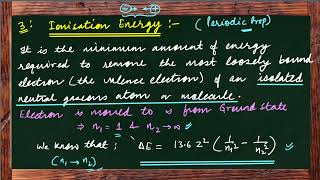 3: Ionisation Energy :- (Periodic Prop)
It is the minimum amount of energy
required to remove the most loosely bound
electron (the valence electron) of an isolated
neutral gaseous atom or molecule.
Electron is moved to ∞ from Ground State
⇒ n₁ = 1 & n₂ → ∞
We know that : ΔE = 13.6 Z² (1/n₁² - 1/n₂²)
(n₁ → n₂)